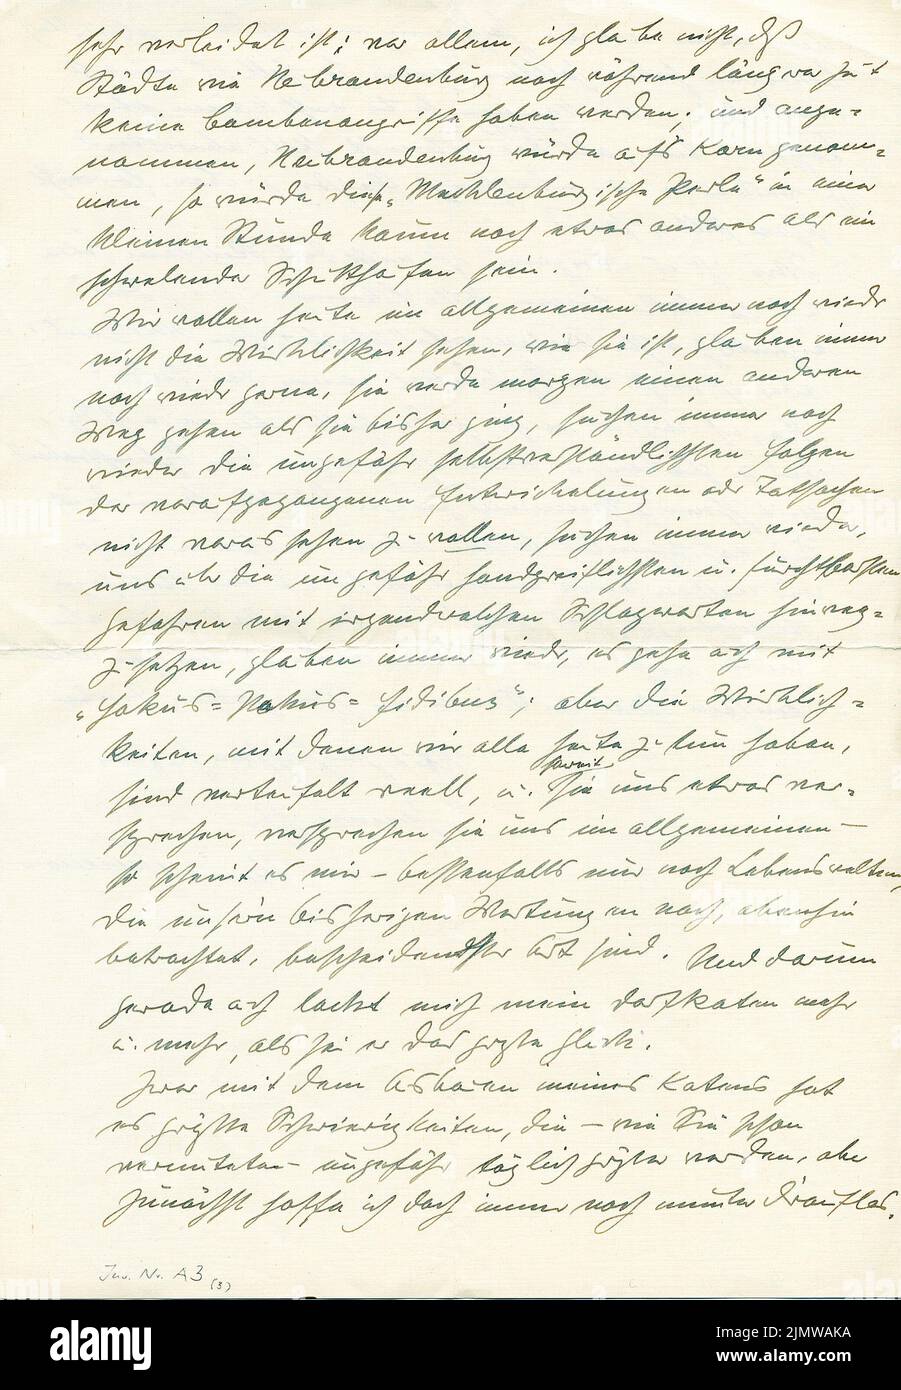 sehr verleidet ist; vor allem, ich glaube nicht, daß
Städte wie Nebrandenburg noch während länger Zeit
keine Bombenangriffe haben werden; und ange=
nommen, Neubrandenburg würde aufs Korn genom=
men, so würde diese „Mecklenburgische Perle“ in einer
kleinen Stunde kaum noch etwas anderes als ein
schwelender Schutthaufen sein.
Wir wollen heute im allgemeinen immer noch wieder
nicht die Wirklichkeit sehen, wie sie ist, glauben immer
noch wieder gerne, sie werde morgen einen anderen
Weg gehen als sie bisher ging, suchen immer noch
wieder die ungefähr selbstverständlichsten Folgen
der voraufgegangenen Entwickelungen oder Tatsachen
nicht voraus sehen zu wollen, suchen immer wieder,
uns über die ungefähr handgreiflichsten u. furchtbarsten
Gefahren mit irgendwelchen Schlagworten hinweg=
zusetzen, glauben immer wieder, es gehe auch mit
„Hokus=Pokus=Fidibus“; aber die Wirklich=
keiten, mit denen wir alle heute zu tun haben,
sind verteufelt reell, u. soweit sie uns etwas ver=
sprechen, versprechen sie uns im allgemeinen –
so scheint es mir – bestenfalls nur noch Lebenswelten,
die unsern bisherigen Wertungen nach, obenhin
betrachtet, bescheidenster Art sind. Und darum
gerade auch lockt mich mein Dorfkaten mehr
u. mehr, als sei er das große Glück.
Zwar mit dem Ausbauen meines Katens hat
es größte Schwierigkeiten, die – wie Sie schon
vermuteten – ungefähr täglich größer werden, aber
zunächst hoffe ich doch immer noch munter drauflos.
Inv. Nr. A3 (3)
alamy
Image ID: 2JMWAKA
www.alamy.com